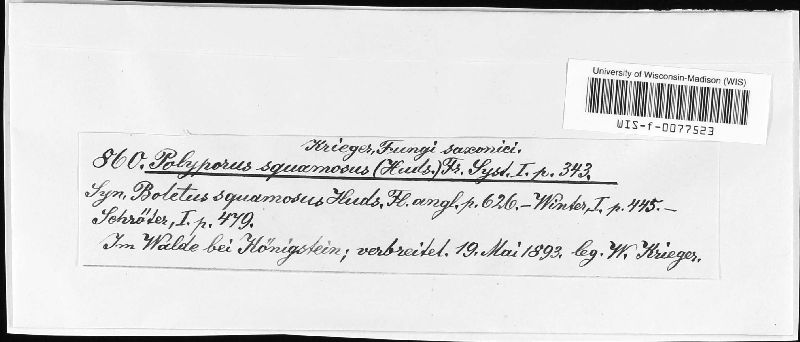 University of Wisconsin-Madison (WIS)
WIS-f-0077523
Krieger, Fungi saxonici.
860. Polyporus squamosus (Huds.) Fr. Syst. I. p. 343.
Syn. Boletus squamosus Huds. Fl. angl. p. 626. – Winter, I. p. 445. –
Schröter, I. p. 479.
Im Walde bei Königstein; verbreitet. 19. Mai 1893. leg. W. Krieger.